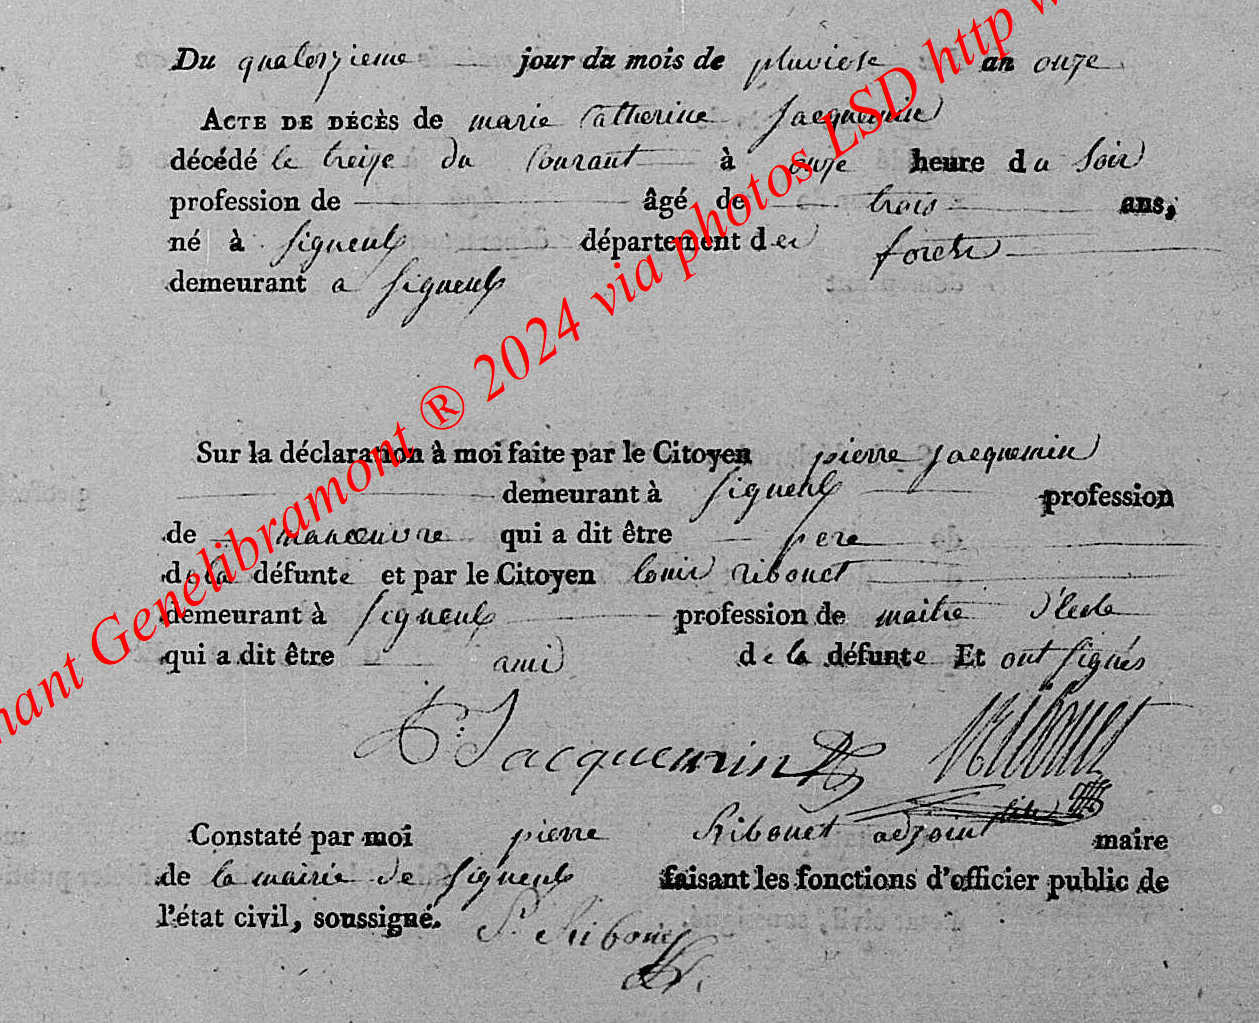 Du quatorzieme jour du mois de pluviose an onze
ACTE DE DÉCÈS de marie Catherine Jacquemin
décédé le treize du Courant à onze heure du Soir
profession de âgé de trois ans,
né à Signeulx département des forets
demeurant a Signeulx
Sur la déclaration à moi faite par le Citoyen pierre Jacquemin
demeurant à Signeulx profession
de manœuvre qui a dit être pere
de la défunte et par le Citoyen louis ribouet
demeurant à Signeulx profession de maitre d'Ecole
qui a dit être ami de la défunte Et ont signés
P. Jacquemin Ribouet
Constaté par moi pierre Ribouet adjoint maire
de la mairie de Signeulx faisant les fonctions d'officier public de
l'état civil, soussigné.
P. Ribouet
nant Genelibramont ® 2024 via photos LSD http